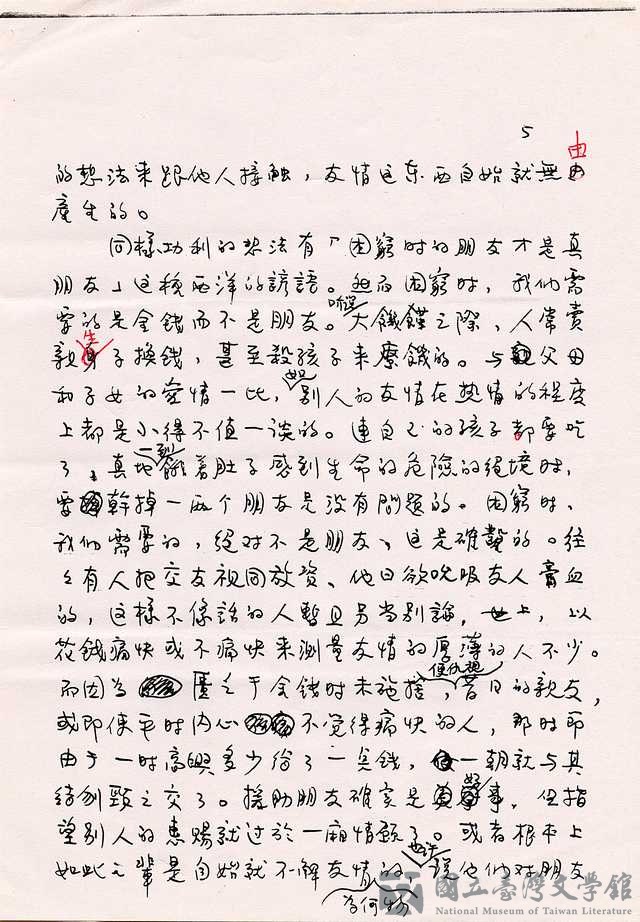 5
由
的想法来跟他人接触，友情这东西自始就無由
產生的。
同樣功利的想法有「困窮时的朋友才是真
朋友」这種西洋的諺語。但而困窮时，我们需
要的是金錢而不是朋友。大饑饉之際，人常賣
親生子換錢，甚至殺孩子来療饑的。与父母
和子女的愛情一比，別人的友情在热情的程度
上都是小得不值一谈的。連自己的孩子都要吃
了，真地餓着肚子感到生命的危險的絕境时，
要幹掉一兩个朋友是没有問題的。困窮时，
我们需要的，絕对不是朋友、这是確鑿的。往
々有人把交友視同放资、他日欲吮吸友人膏血
的，这樣不像話的人暫且另当別論，世上，以
花錢痛快或不痛快来測量友情的厚薄的人不少。
而因為匱乏于金錢时未施捨，便仇視昔日的親友，
或即使平时内心不觉得痛快的人，那时即
由于一时高興多少給了一点錢，一朝就与其
结刎頸之交了。援助朋友確实是好事，但指
望別人的惠賜就过於一廂情願了。或者根本上
如此之輩是自始就不解友情的為何物，也许他们对朋友
國立臺灣文学館
National Museum of Taiwan Literature